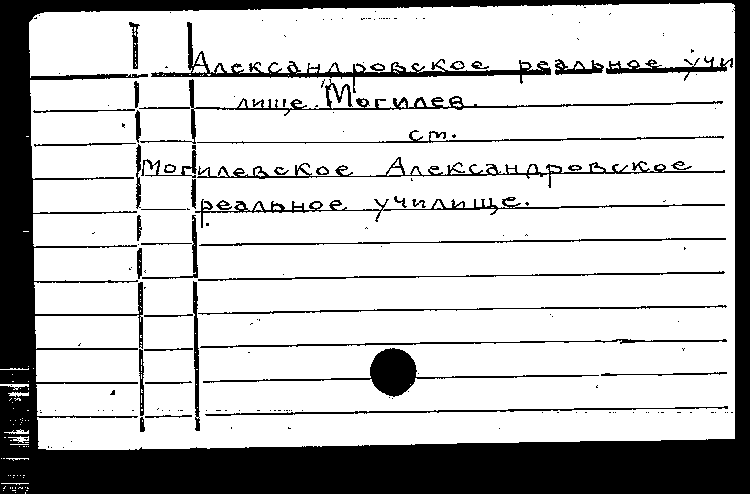 Александровское реальное учи
лище. Могилев.
ст.
Могилевское Александровское
реальное училище.